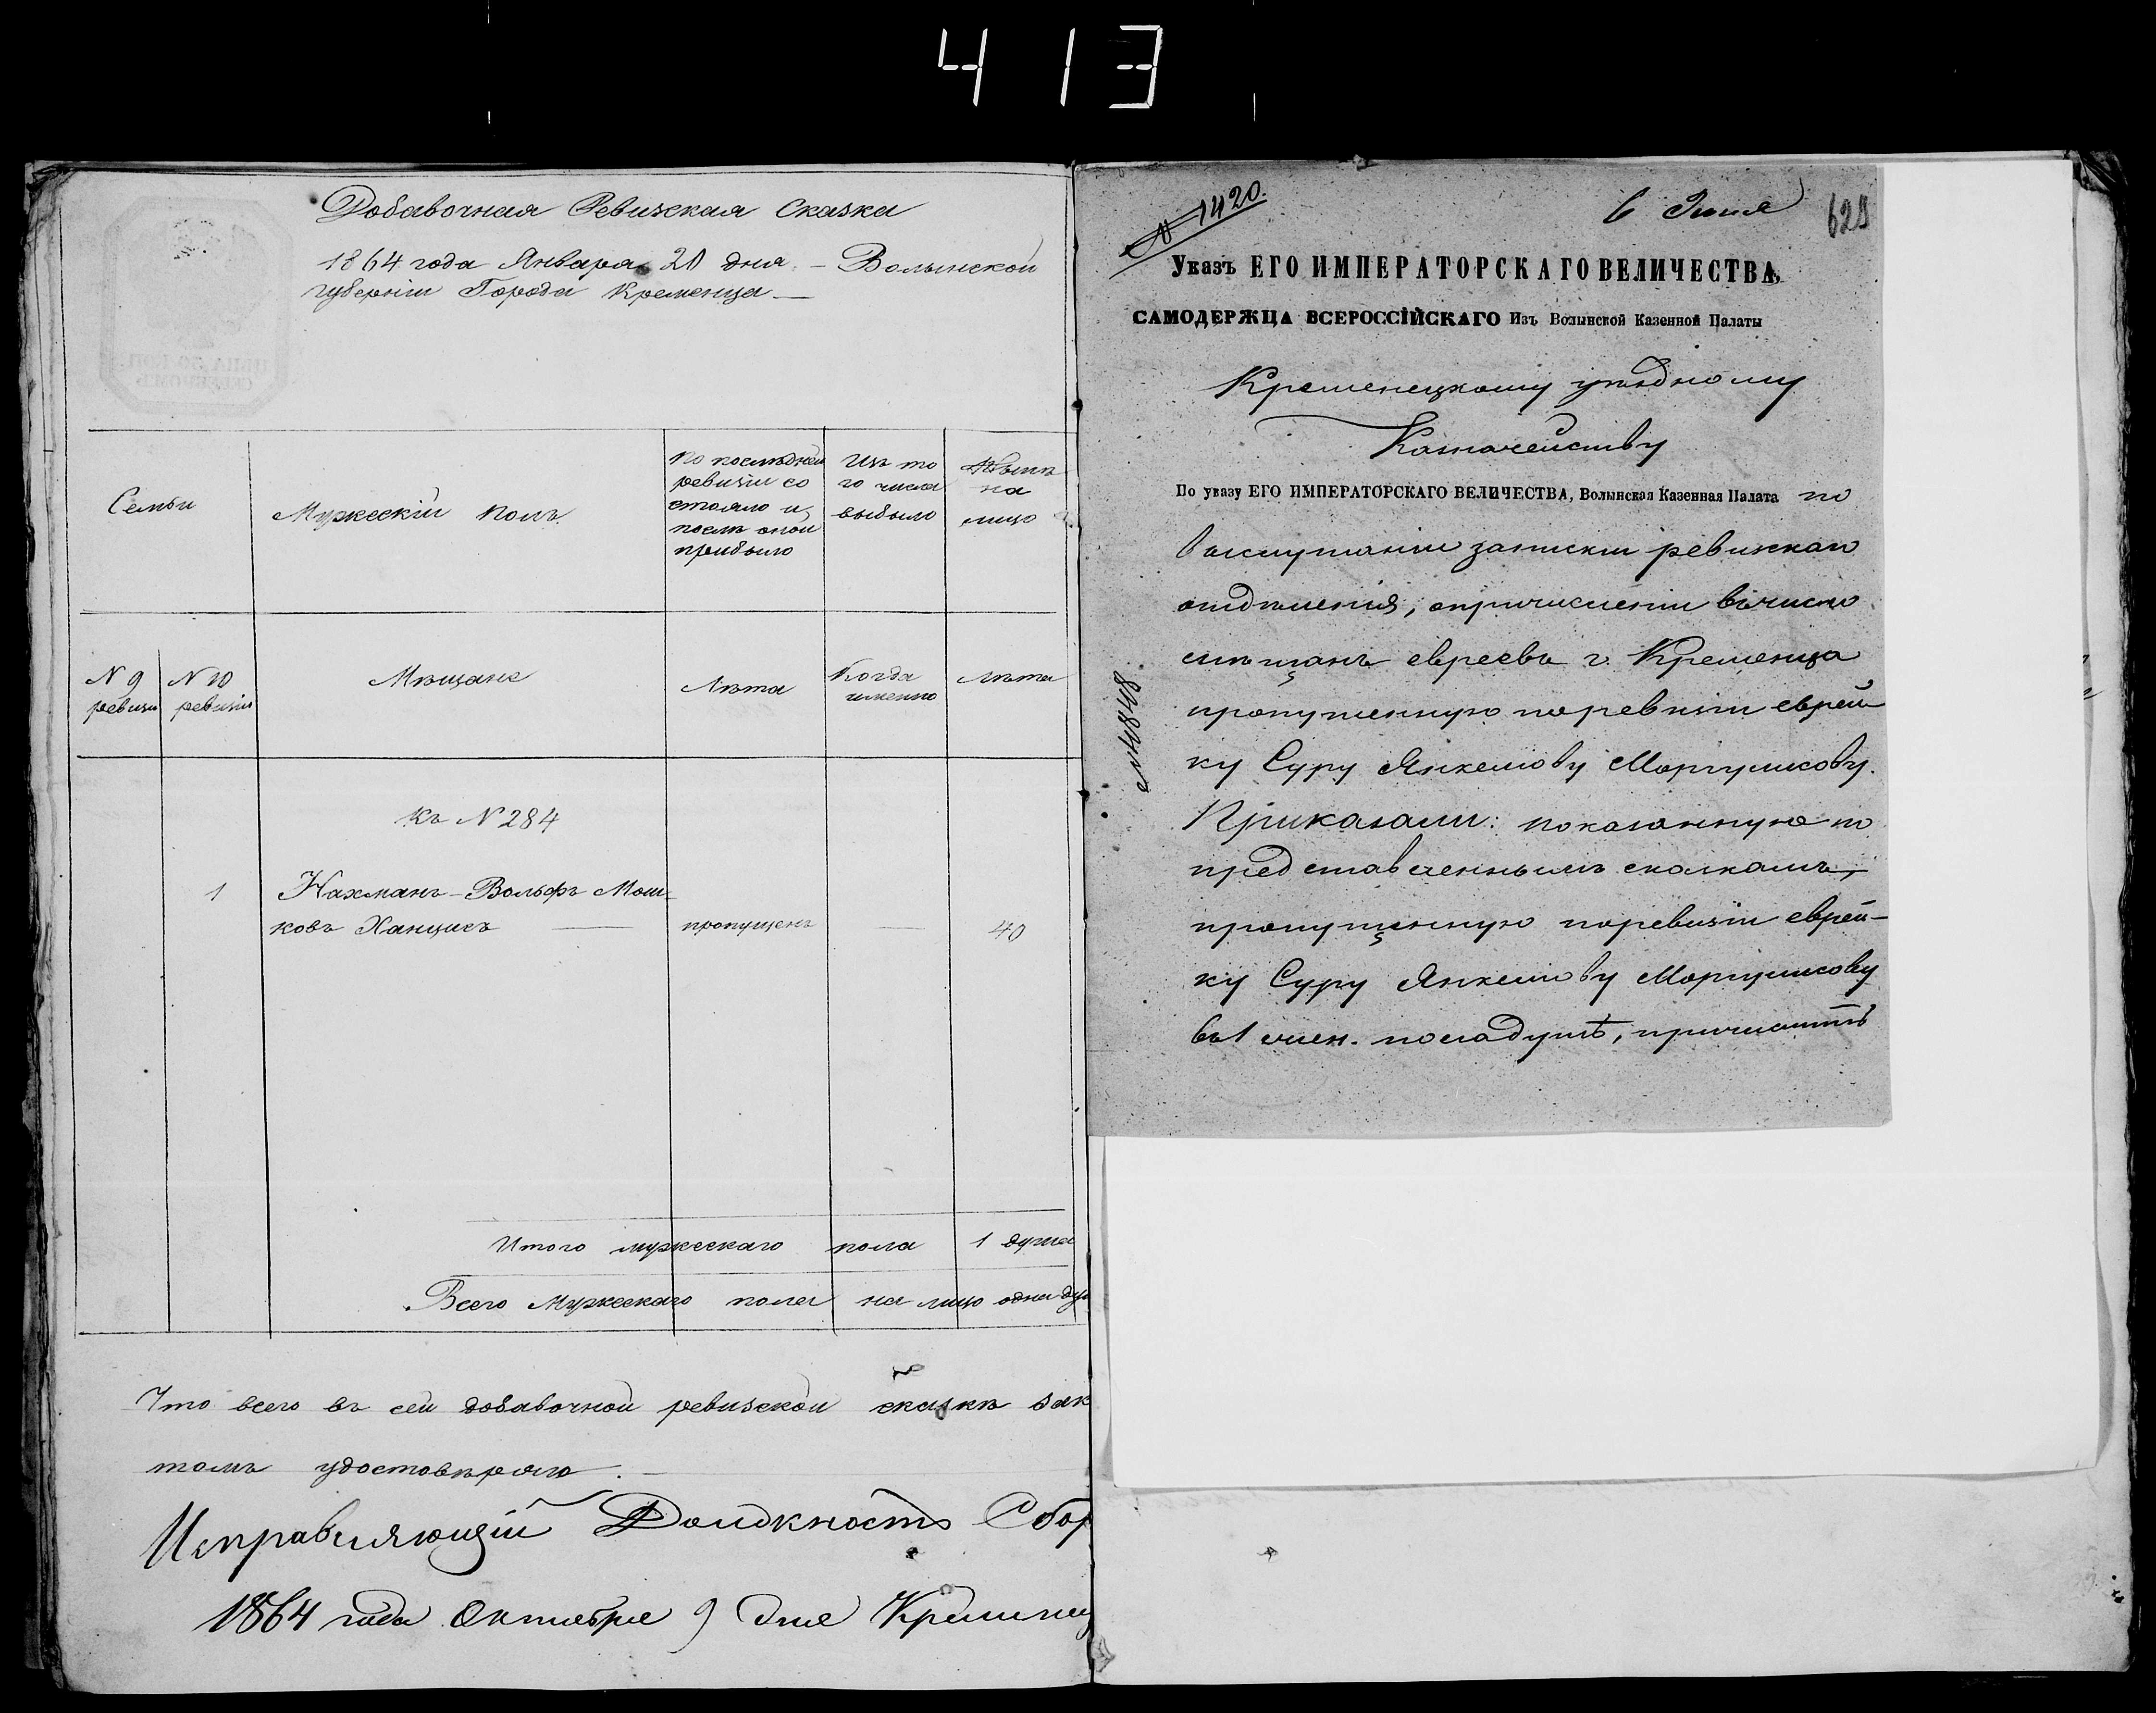 413
Добавочная Ревизская Сказка
1864 года Января 20 дня – Волынской
губерніи Города Кременца —
Семьи
Мужескій полъ
По послѣдней ревизіи со
стояло и
послѣ оной
прибыло
Изъ то
го числа
выбыло
Нынѣ
на
лицо
N 9
ревизіи
N 10
ревизіи
Мѣщане
Лѣта
Когда
именно
Лѣта
къ N 284
1 Нахманъ-Вольфъ Мош-
ковъ Ханцисъ — пропущенъ — 40
Итого мужескаго пола 1 душа
Всего Мужескаго пола на лицо одна ду
Что всего въ сей добавочной ревизской сказкѣ зак
томъ удостовѣряю. —
Исправляющій Должность Сбор
1864 года Октября 9 дня Кременец
N 1420.
6 Іюня
629
Указъ ЕГО ИМПЕРАТОРСКАГО ВЕЛИЧЕСТВА,
САМОДЕРЖЦА ВСЕРОССІЙСКАГО Изъ Волынской Казенной Палаты
Кременецкому уѣздному
Казначейству
По указу ЕГО ИМПЕРАТОРСКАГО ВЕЛИЧЕСТВА, Волынская Казенная Палата по
выслушаніи записки ревизскаго
отдѣленія, о причисленіи въ число
мѣщанъ евреевъ г. Кременца
пропущенную по ревизіи еврей
ку Суру Янкелову Маргулисову.
Приказали: показанную по
представленнымъ сказкамъ,
пропущенную по ревизіи еврей-
ку Суру Янкелову Маргулисову
въ 1 жен. пола душѣ, причислить